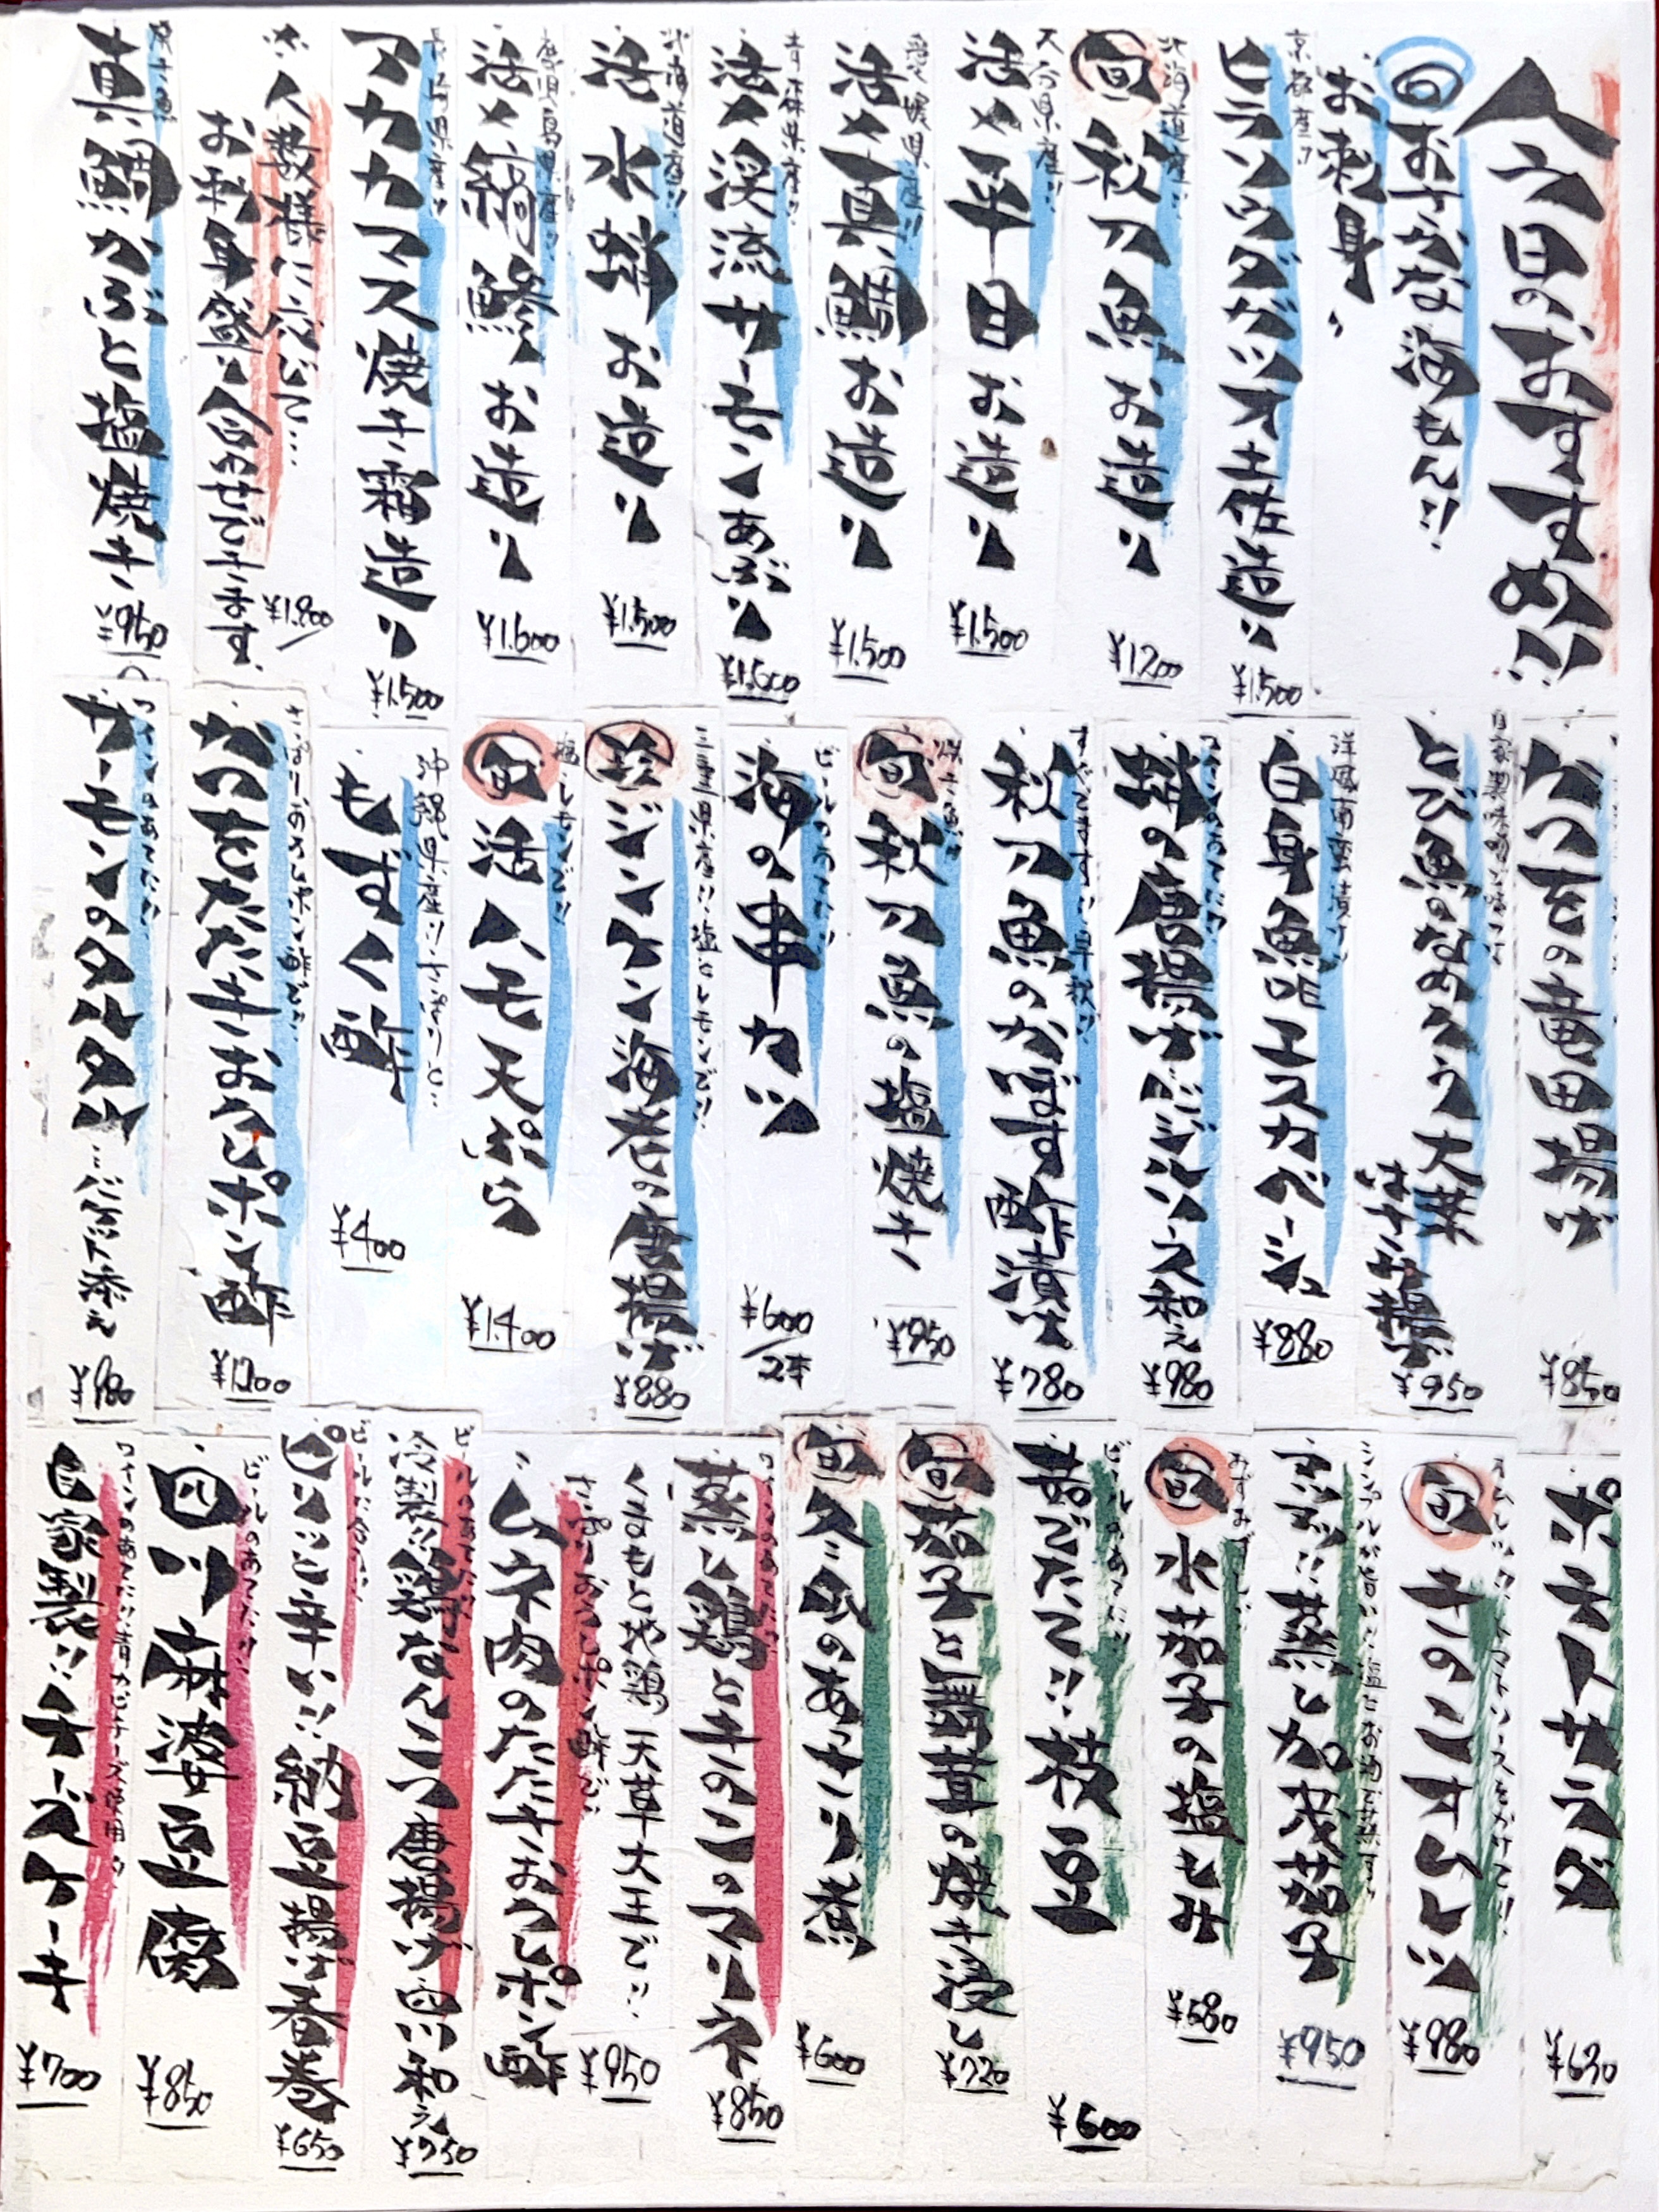 今日のおすすめ!!
旬 おすすめな海もん!!
お刺身
京都産!!
ヒラソウダガツオ土佐造り
¥1.500
北海道産!!
旬 秋刀魚お造り
¥1200
大分県産!!
活〆平目お造り
¥1.500
愛媛県産!!
活〆真鯛お造り
¥1.500
青森県産!!
活〆渓流サーモンあぶり
¥1.600
北海道産!!
活水蛸お造り
¥1.500
鹿児島県産!!
活〆縞鯵お造り
¥1.600
長崎県産!!
アカカマス焼き霜造り
¥1.500
人数様に応じて…
お刺身盛り合わせできます
¥1.800/
焼き魚
真鯛かぶと塩焼き
¥950
かつをの竜田揚げ
¥850
自家製味噌
とび魚のなめろう大葉はさみ揚げ
¥950
洋風南蛮漬け
白身魚のエスカベーシュ
¥880
ワインのあてに!!
蛸の唐揚げバジルソース和え
¥980
すだちます!!早秋!!
秋刀魚のかぼす酢漬け
¥780
焼き魚
旬 秋刀魚の塩焼き
¥950
ビールのあてに!!
海の串カツ
¥600/2本
三重県産!!塩とレモンで!!
珍 ジンケン海老の唐揚げ
¥880
塩レモンで!!
旬 活ハモ天ぷら
¥1.400
沖縄県産!!さっぱりと…
もずく酢
¥400
さっぱりおろしポン酢で!!
かつをたたきおろしポン酢
¥1200
ワインのあてに!!
サーモンのタルタル…バゲット添え
¥980
ポテトサラダ
¥630
オムレツ!!トマトソースをかけて!!
旬 きのこオムレツ
¥980
シンプルが旨い!!塩とお酒で蒸す
京都!!蒸し加茂茄子
¥950
みずみずしい
旬 水茄子の塩もみ
¥580
ビールのあてに!!
茹でたて!!枝豆
¥600
旬 茄子と万願寺の焼き浸し
¥720
旬 冬瓜のあっさり煮
¥600
ワインのあてに
蒸し鶏ときのこのマリネ
¥850
くまもと地鶏 天草大王で!!
さっぱりおろしポン酢で
ムネ肉のたたきおろしポン酢
¥950
ビールのあてに!!
冷製!!鶏なんこつ唐揚げ四川和え
¥750
ビールに合う!!
ピリッと辛い!!納豆揚げ春巻
¥650
ビールのあてに!!
四川麻婆豆腐
¥850
ワインのあてに!!青カビチーズ使用
自家製!!チーズケーキ
¥700